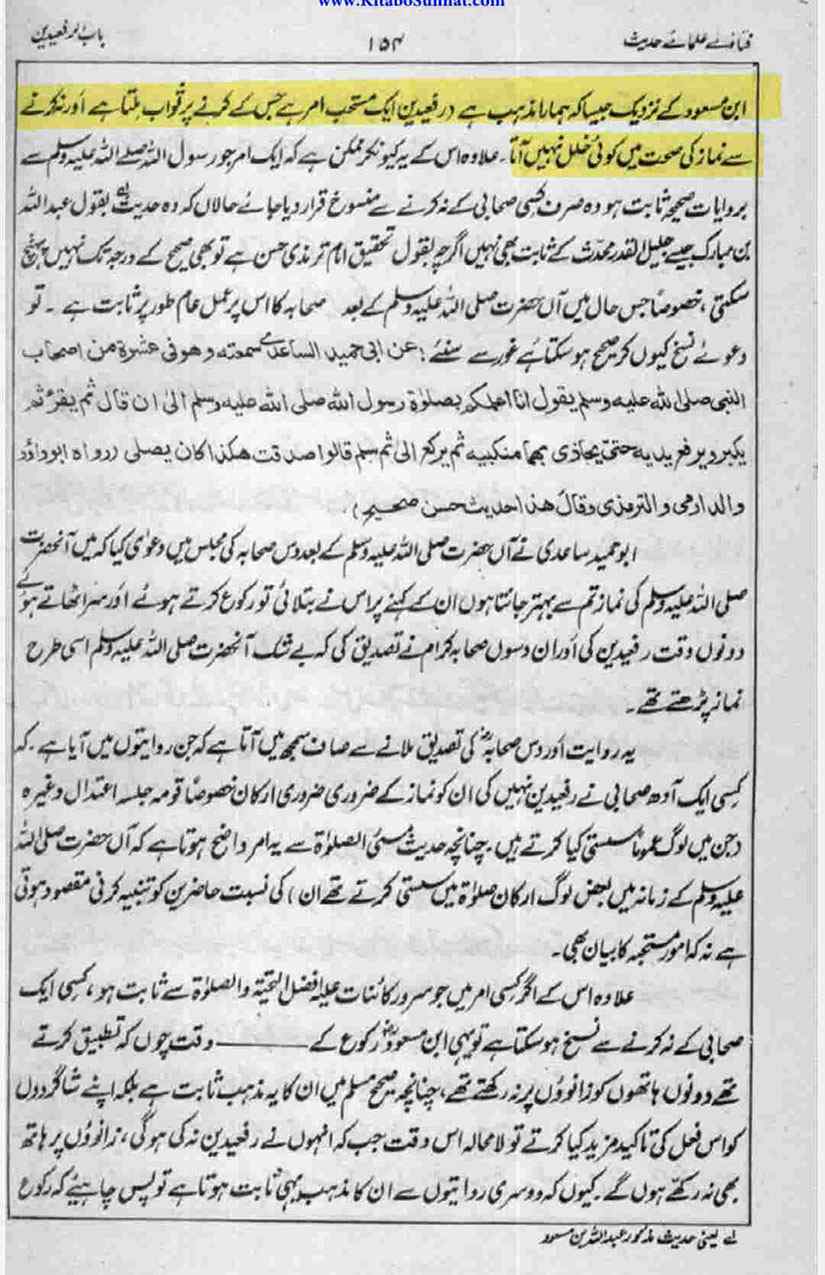 www.KitaboSunnat.com
باب رفعیدین
۱۵۴
فتاوےٰ علمائے حدیث
ابن مسعود کے نزدیک جیسا کہ ہمارا مذہب ہے رفعیدین ایک مستحب امر ہے جس کے کرنے پر ثواب ملتا ہے اور نہ کرنے
سے نماز کی صحت میں کوئی خلل نہیں آتا ۔ علاوہ اس کے یہ کیونکر ممکن ہے کہ ایک امر جو رسول اللہ صلے اللہ علیہ وسلم سے
بروایات صحیحہ ثابت ہو وہ صرف کسی صحابی کے نہ کرنے سے منسوخ قرار دیا جائے حالاں کہ وہ حدیث لے بقول عبداللہ
بن مبارک جیسے جلیل القدر محدث کے ثابت بھی نہیں اگرچہ بقول تحقیق امام ترمذی حسن ہے تو بھی صحیح کے درجہ تک نہیں پہنچ
سکتی ، خصوصاً جس حال میں آں حضرت صلی اللہ علیہ وسلم کے بعد صحابہ کا اس پر عمل عام طور پر ثابت ہے ۔ تو
دعوئے نسخ کیوں کر صحیح ہو سکتا ہے غور سے سنئے : عن ابی حمید الساعدی سمعتہ وھو فی عشرۃ من اصحاب
النبی صلی اللہ علیہ وسلم یقول انا اعلمکم بصلوٰۃ رسول اللہ صلی اللہ علیہ وسلم الیٰ ان قال ثم یقرء ثم
یکبر ویرفع یدیہ حتیٰ یحاذی بھما منکبیہ ثم یرکع الیٰ ثم سلم قالوا صدقت ھکذا کان یصلی (رواہ ابوداؤد
والدارمی والترمذی وقال ھذا حدیث حسن صحیح) ۔
ابوحمید ساعدی نے آں حضرت صلی اللہ علیہ وسلم کے بعد دس صحابہ کی مجلس میں دعویٰ کیا کہ میں آنحضرت
صلی اللہ علیہ وسلم کی نماز تم سے بہتر جانتا ہوں ان کے کہنے پر اس نے بتلائی تو رکوع کرتے ہوئے اور سر اٹھاتے ہوئے
دونوں وقت رفعیدین کی اور ان دسوں صحابہ کرام نے تصدیق کی کہ بے شک آنحضرت صلی اللہ علیہ وسلم اسی طرح
نماز پڑھتے تھے ۔
یہ روایت اور دس صحابہؓ کی تصدیق ملانے سے صاف سمجھ میں آتا ہے کہ جن روایتوں میں آیا ہے ۔ کہ
کسی ایک آدھ صحابی نے رفعیدین نہیں کی ان کو نماز کے ضروری ضروری ارکان خصوصاً قومہ جلسہ اعتدال وغیرہ
(جن میں لوگ عموماً سستی کیا کرتے ہیں ۔ چنانچہ حدیث مسئ الصلوٰۃ سے یہ امر واضح ہوتا ہے کہ آں حضرت صلی اللہ
علیہ وسلم کے زمانہ میں بعض لوگ ارکان صلوٰۃ میں سستی کرتے تھے ان ) کی نسبت حاضرین کو تنبیہ کرنی مقصود ہوتی
ہے نہ کہ امور مستحبہ کا بیان بھی ۔
علاوہ اس کے اگر کسی امر میں جو سرور کائنات علیہ افضل التحیۃ والصلوٰۃ سے ثابت ہو ، کسی ایک
صحابی کے نہ کرنے سے نسخ ہو سکتا ہے تو یہی ابن مسعودؓ رکوع کے ——— وقت چوں کہ تطبیق کرتے
تھے دونوں ہاتھوں کو زانوؤں پر نہ رکھتے تھے ، چنانچہ صحیح مسلم میں ان کا یہ مذہب ثابت ہے بلکہ اپنے شاگردوں
کو اس فعل کی تاکید مزید کیا کرتے تو لامحالہ اس وقت جب کہ انہوں نے رفعیدین نہ کی ہو گی ، زانوؤں پر ہاتھ
بھی نہ رکھے ہوں گے ۔ کیوں کہ دوسری روایتوں سے ان کا مذہب یہی ثابت ہوتا ہے تو پس چاہیئے کہ رکوع
لے یعنی حدیث مذکور عبداللہ بن مسعود